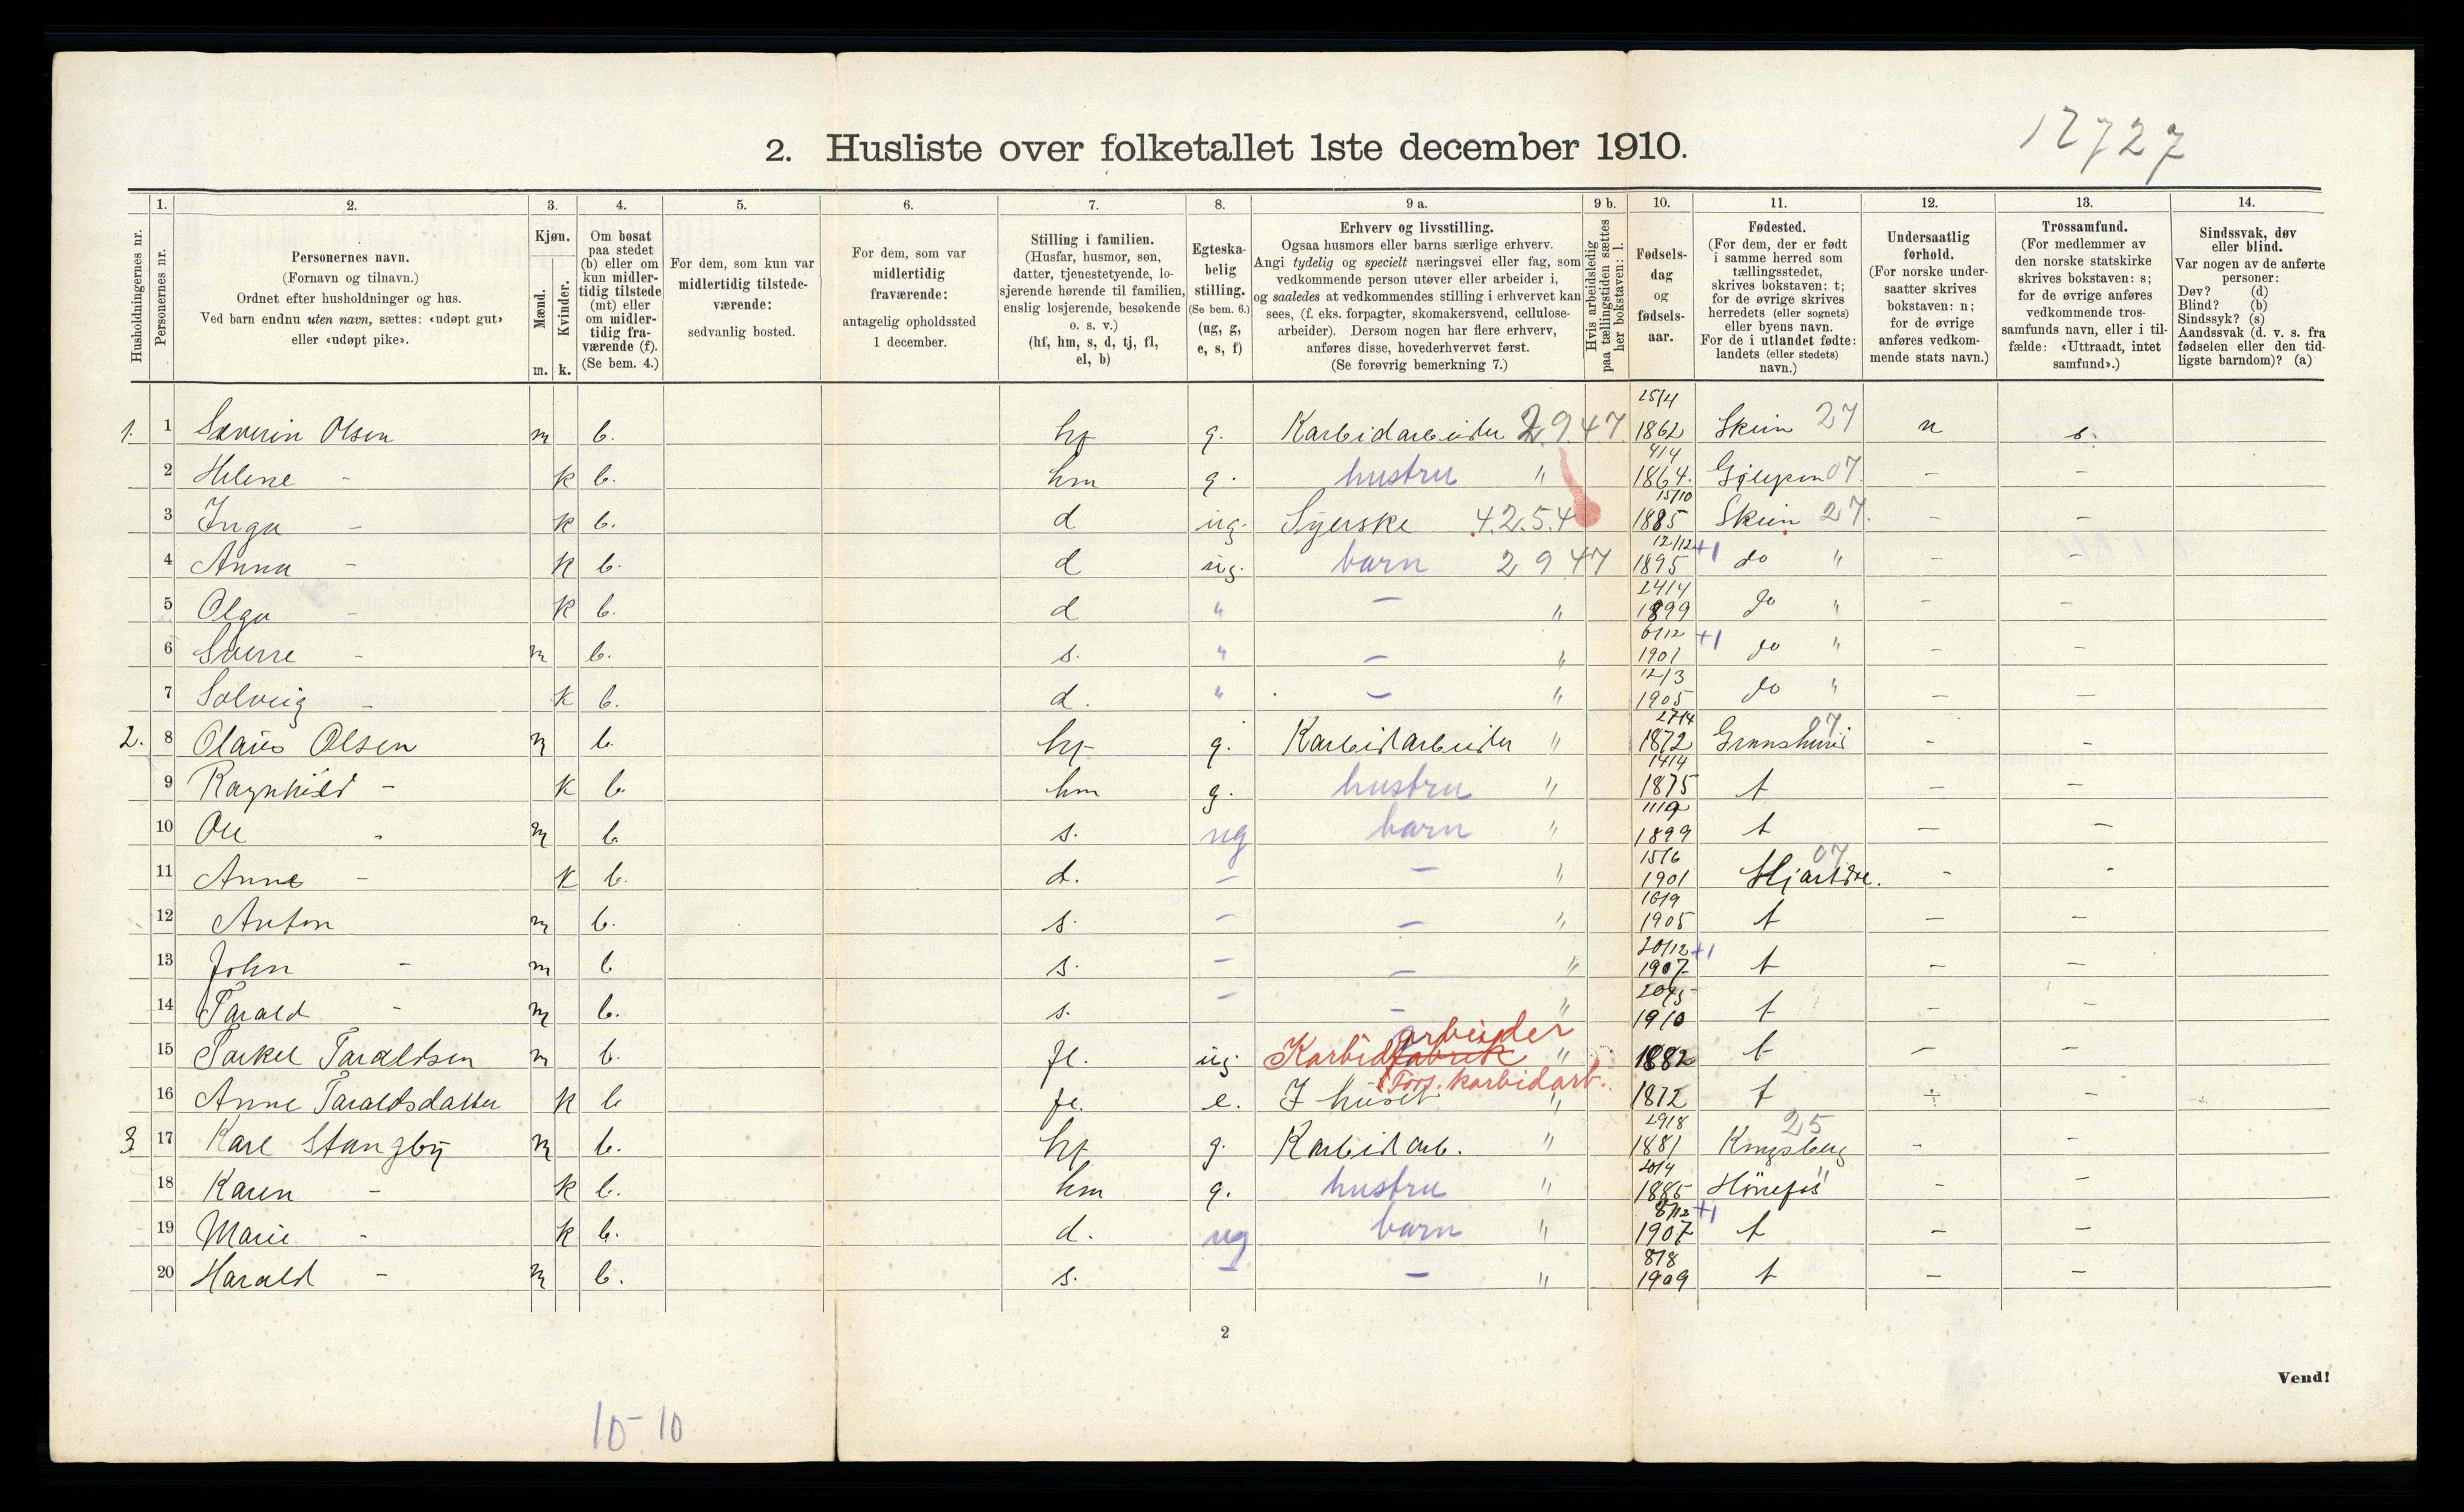 12727
2. Husliste over folketallet 1ste december 1910.
Husholdningernes nr.
1. Personernes nr.
2. Personernes navn. (Fornavn og tilnavn.) Ordnet efter husholdninger og hus. Ved barn endnu uten navn, sættes: «udøpt gut» eller «udøpt pike».
3. Kjøn. Mænd. m. Kvinder. k.
4. Om bosat paa stedet (b) eller om kun midlertidig tilstede (mt) eller om midlertidig fraværende (f). (Se bem. 4.)
5. For dem, som kun var midlertidig tilstedeværende: sedvanlig bosted.
6. For dem, som var midlertidig fraværende: antagelig opholdssted 1 december.
7. Stilling i familien. (Husfar, husmor, søn, datter, tjenestetyende, losjerende hørende til familien, enslig losjerende, besøkende o. s. v.) (hf, hm, s, d, tj, fl, el, b)
8. Egteskabelig stilling. (Se bem. 6.) (ug, g, e, s, f)
9 a. Erhverv og livsstilling. Ogsaa husmors eller barns særlige erhverv. Angi tydelig og specielt næringsvei eller fag, som vedkommende person utøver eller arbeider i, og saaledes at vedkommendes stilling i erhvervet kan sees, (f. eks. forpagter, skomakersvend, cellulosearbeider). Dersom nogen har flere erhverv, anføres disse, hovederhvervet først. (Se forøvrig bemerkning 7.)
9 b. Hvis arbeidsledig paa tællingstiden sættes her bokstaven: l.
10. Fødselsdag og fødselsaar.
11. Fødested. (For dem, der er født i samme herred som tællingsstedet, skrives bokstaven: t; for de øvrige skrives herredets (eller sognets) eller byens navn. For de i utlandet fødte: landets (eller stedets) navn.)
12. Undersaatlig forhold. (For norske undersaatter skrives bokstaven: n; for de øvrige anføres vedkommende stats navn.)
13. Trossamfund. (For medlemmer av den norske statskirke skrives bokstaven: s; for de øvrige anføres vedkommende trossamfunds navn, eller i tilfælde: «Uttraadt, intet samfund».)
14. Sindssvak, døv eller blind. Var nogen av de anførte personer: Døv? (d) Blind? (b) Sindssyk? (s) Aandssvak (d. v. s. fra fødselen eller den tidligste barndom)? (a)
1. 1 Severin Olsen m b. hf g. Karbidarbeider 2.9.47. 25/4 1862 Skien 27 n s.
2 Helene - k b. hm g. hustru " 4/4 1864. Gjerpen 07. - -
3 Inga - k b. d ug. Syerske 4.2.5.4 15/10 1885 Skien 27. - -
4 Anna - k b. d ug. barn 2 9 47 12/12 1895 +1 do " - -
5 Olga - k b. d " - " 24/4 1899 do " - -
6 Sverre - m b. s. " - " 6/12 1901 +1 do " - -
7 Solveig - k b. d. " - " 12/3 1905 do " - -
2. 8 Olaus Olsen m b. hf g. Karbidarbeider " 27/4 1872 Granshered 07 - -
9 Ragnhild - k b. hm g. hustru " 14/4 1875 t - -
10 Ole - m b. s. ug barn " 11/9 1899 t - -
11 Anne - k b. d. - - " 15/6 1901 Hjartdøl. 07 - -
12 Anton m b. s. - - " 16/9 1905 t - -
13 John - m b s. - - " 20/12 1907 +1 t - -
14 Tarald - m b. s. - - " 1910 t - -
15 Torkel Taraldsen m b. fl. ug. Karbidfabrik arbeider " 1882 t - -
16 Anne Taraldsdatter k b fl. e. I huset Fors. karbidarb. " 1812 t ÷ -
3 17 Karl Stangby m b. hf g. Karbidarb. " 29/8 1881 Kongsberg 25 - -
18 Karen - k b. hm g. hustru " 20/4 1885 Hönefos " - -
19 Marie - k b. d. ug barn " 8/12 1907 +1 t - -
20 Harald - m b. s. - - " 8/8 1909 t - -
2
Vend!
10-10